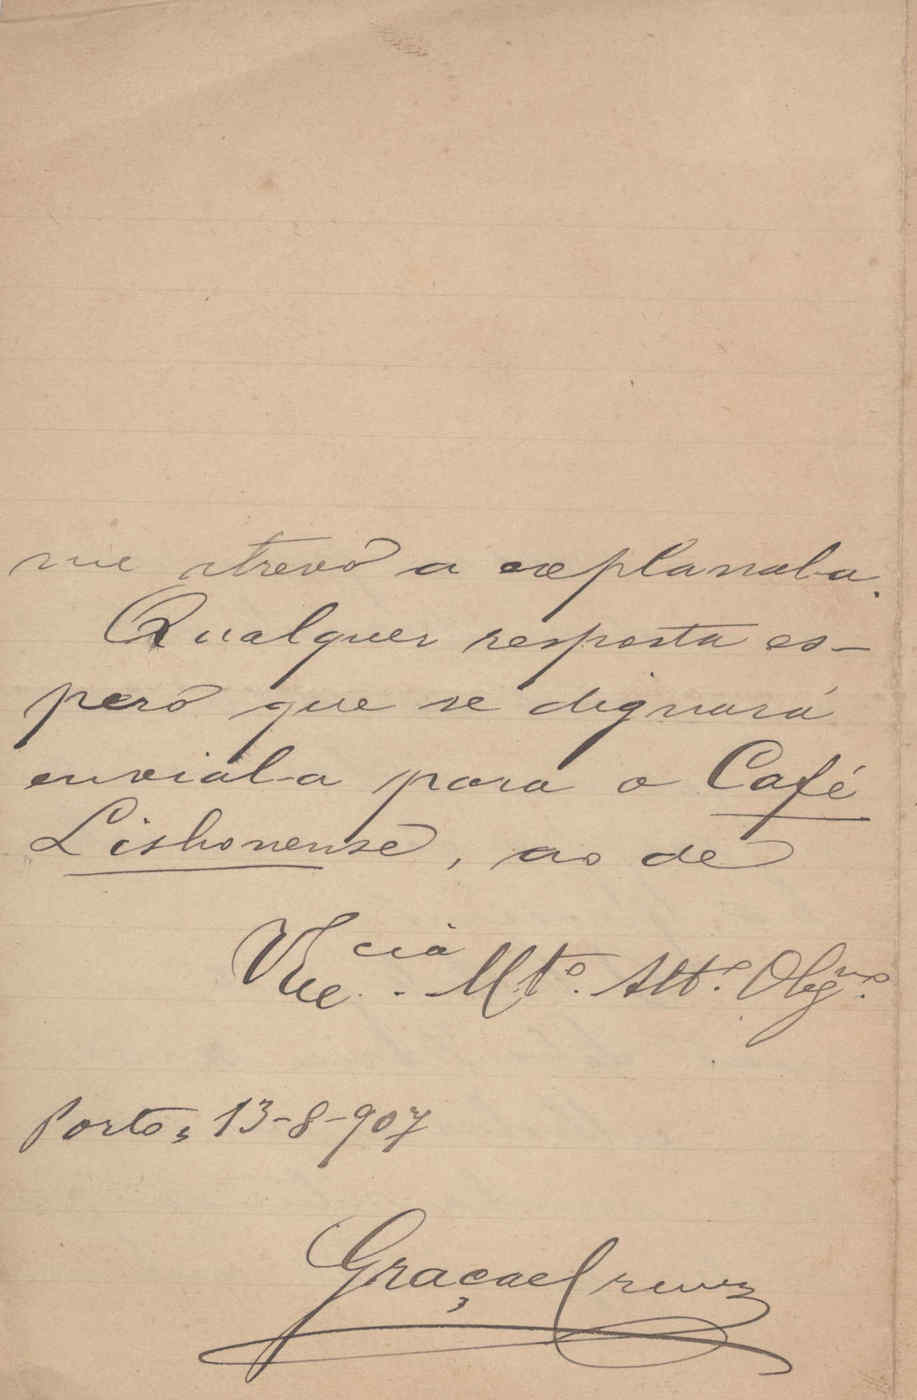 me atrevo a explanal-a.
Qualquer resposta es-
pero que se dignará
envial-a para o Café
Lisbonense, ao de
V Excia. Mto. Attº. Obgmº.
Porto, 13-8-907
Graça e Cruz